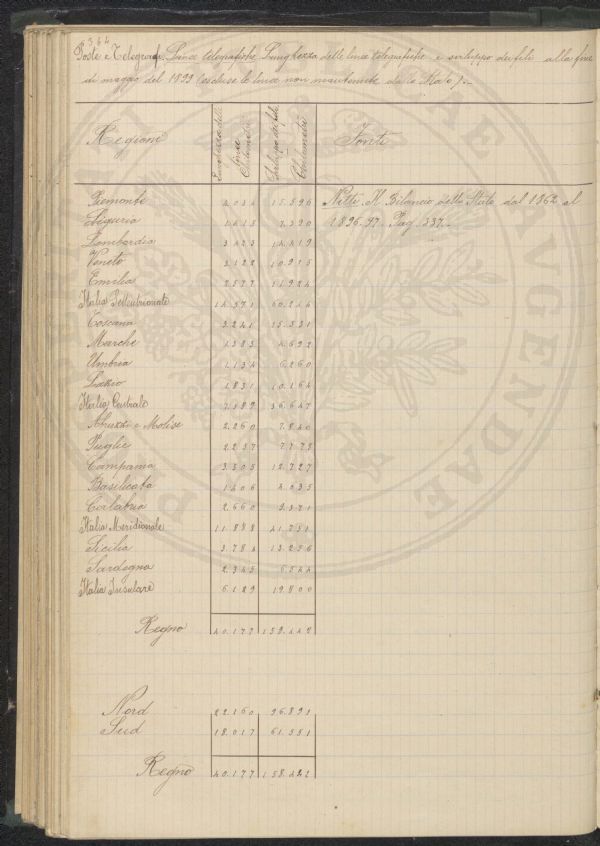 364
Poste e Telegrafi. Linee telegrafiche Lunghezza delle linee telegrafiche e sviluppo dei fili alla fine
di maggio del 1899 (escluse le linee non mantenute da lo Stato).-
Regioni
Lunghezza delle linee Chilometri
Sviluppo dei fili Chilometri
Fonti
Piemonte 4.034 15.596 Nitti. Il Bilancio dello Stato dal 1862 al
Liguria 1.413 7.390 1896-97. Pag. 337.-
Lombardia 3.423 14.419
Veneto 3.122 10.915
Emilia 2.577 11.924
Italia Settentrionale 14.571 60.244
Toscana 3.241 15.531
Marche 1.383 4.692
Umbria 1.134 6.260
Lazio 1.831 10.164
Italia Centrale 7.589 36.647
Abruzzi e Molise 2.260 7.840
Puglie 2.257 7.775
Campania 3.305 12.727
Basilicata 1.406 4.035
Calabria 2.660 9.371
Italia Meridionale 11.888 41.751
Sicilia 3.784 13.256
Sardegna 2.345 6.544
Italia Insulare 6.129 19.800
Regno 40.177 158.442
Nord 22.160 96.891
Sud 18.017 61.551
Regno 40.177 158.442